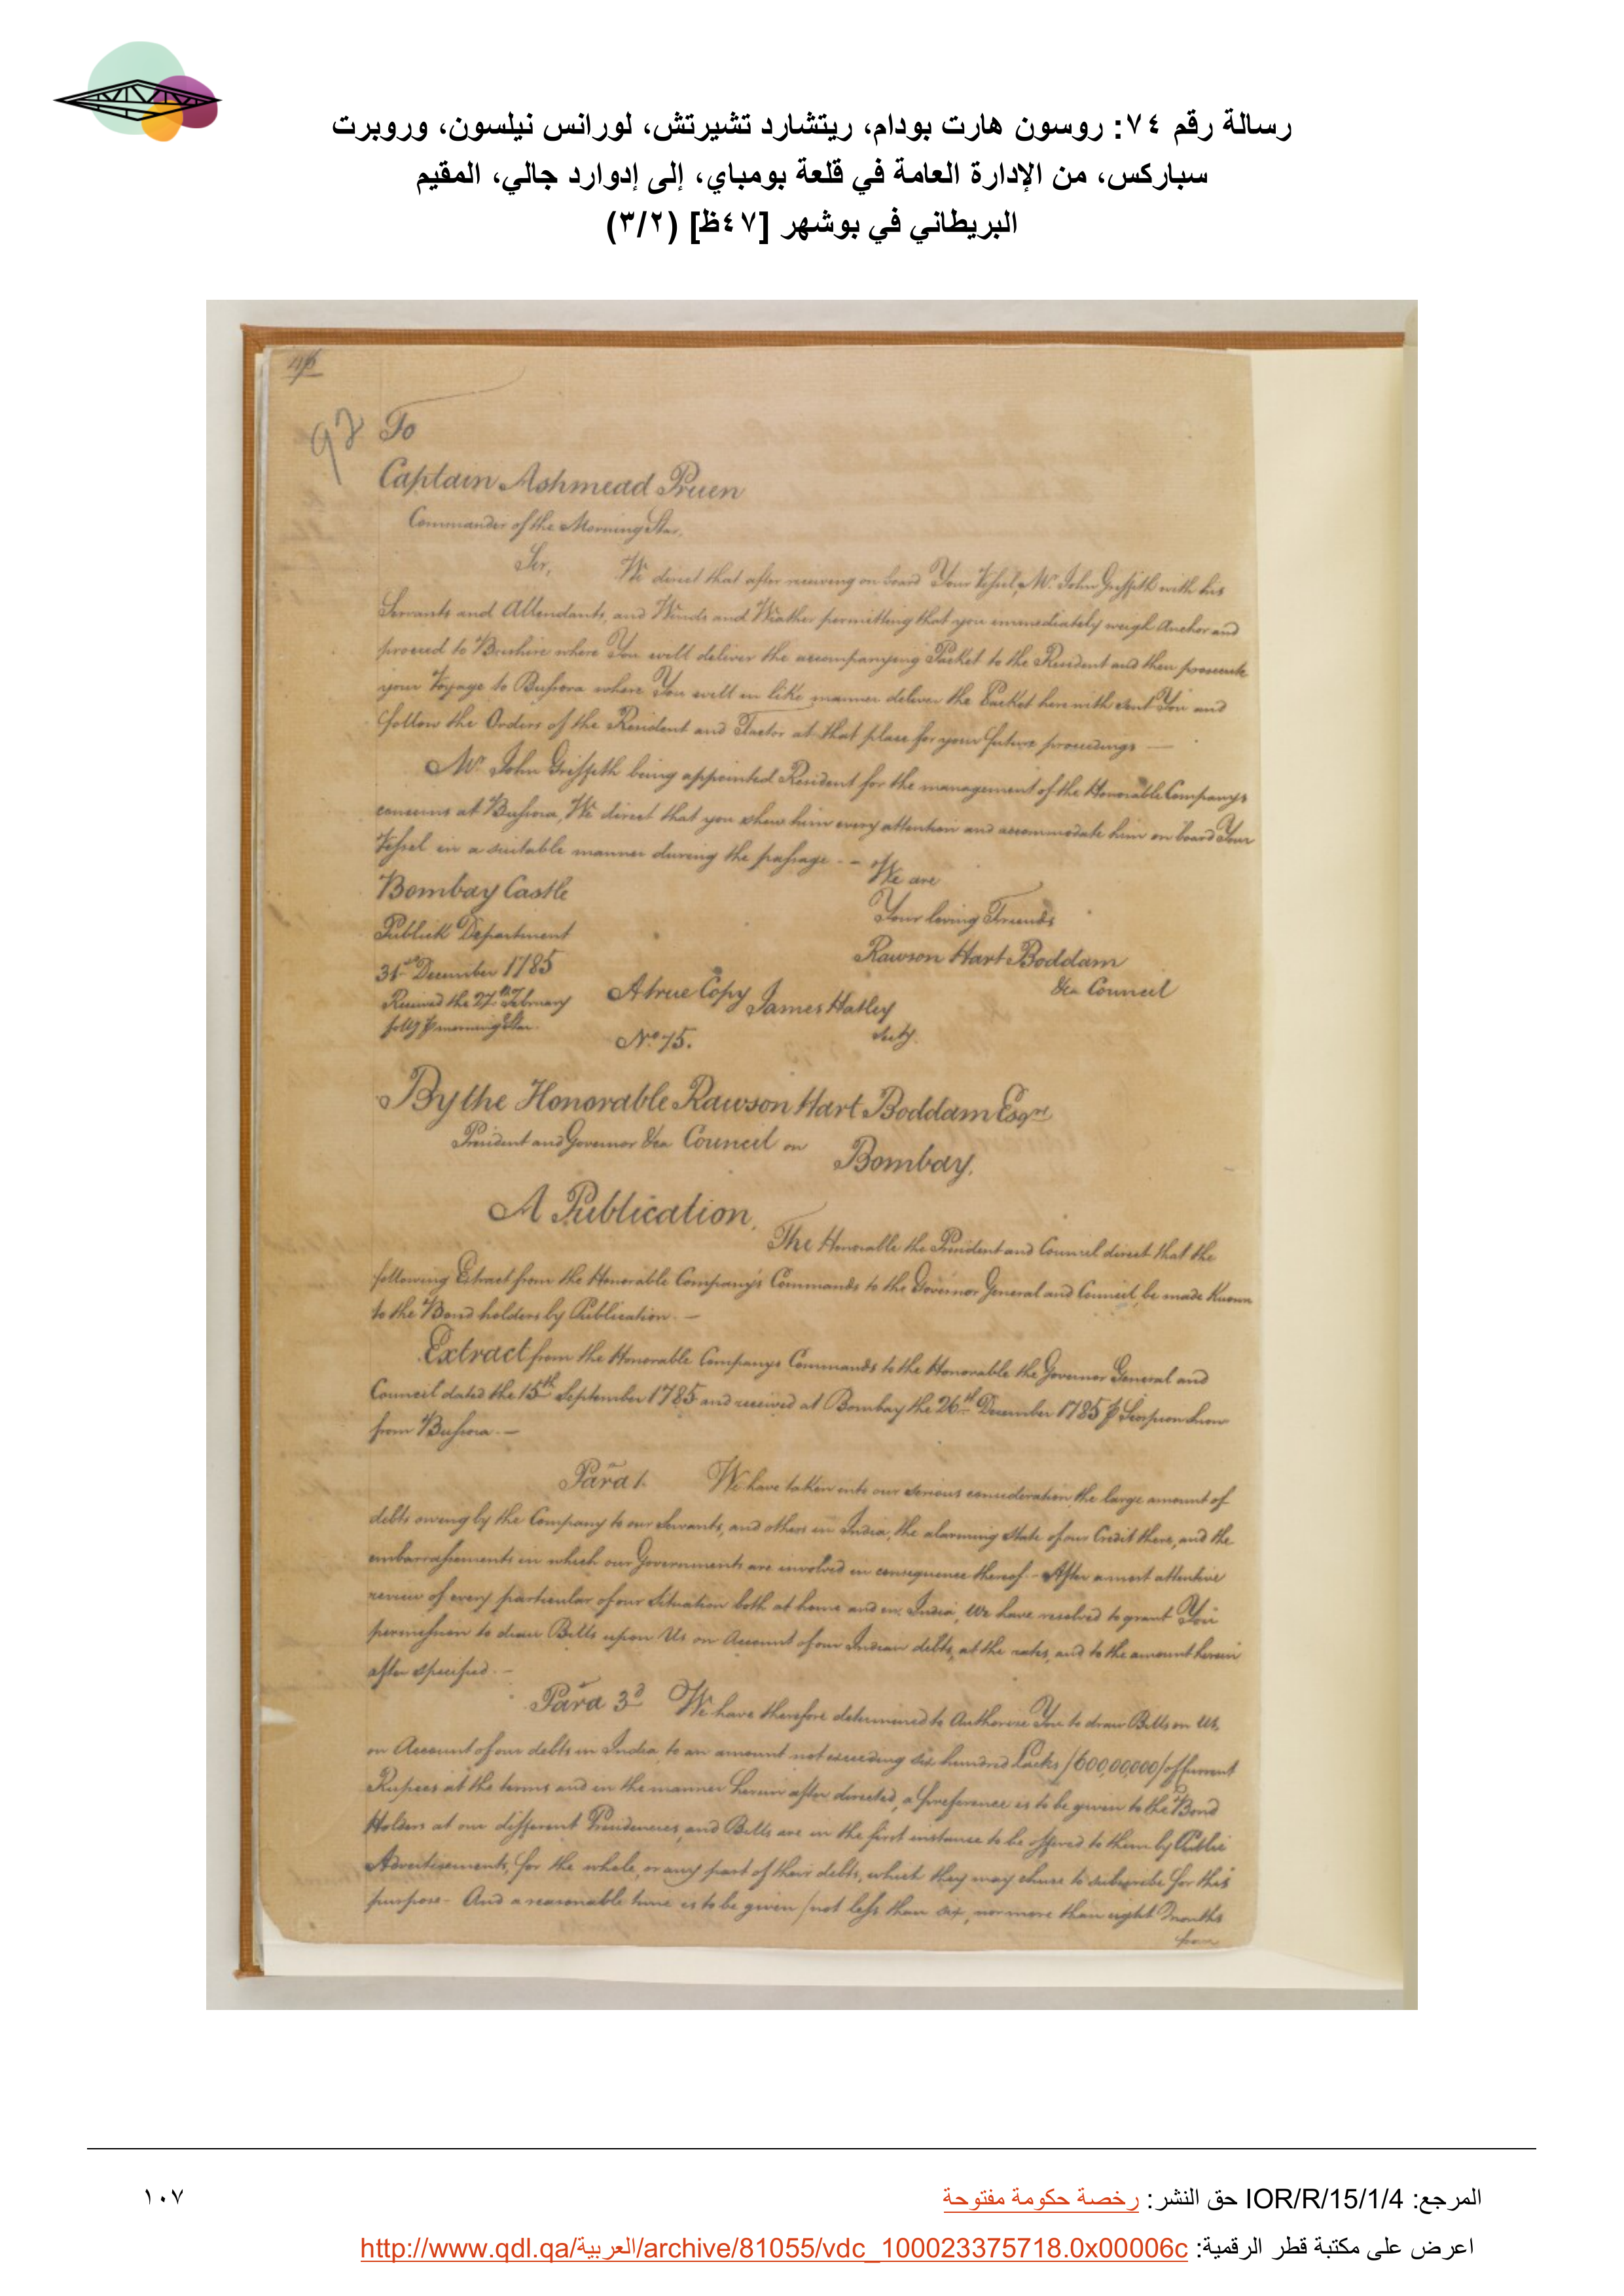 رسالة رقم ٧٤: روسون هارت بودام، ريتشارد تشيرتش، لورانس نيلسون، وروبرت
سباركس، من الإدارة العامة في قلعة بومباي، إلى إدوارد جالي، المقيم
البريطاني في بوشهر [٤٧ظ] (٣/٢)
To
Captain Ashmead Pruen
Commander of the Morning Star.
Sir, We direct that after receiving on board Your Vessel, Mr. John Griffith with his
Servants and Attendants, and Winds and Weather permitting that you immediately weigh Anchor and
proceed to Bushire where You will deliver the accompanying Packet to the Resident and then prosecute
your Voyage to Bussora where You will in like manner deliver the Packet herewith sent You and
follow the Orders of the Resident and Factor at that place for your future proceedings —
Mr. John Griffith being appointed Resident for the management of the Honorable Companys
concerns at Bussora, We direct that you shew him every attention and accommodate him on board Your
Vessel in a suitable manner during the passage. - We are
Bombay Castle
Your loving Friends
Publick Department
Rawson Hart Boddam
31st December 1785
&ca Council
Received the 27th February
A true Copy James Hatley
Secty.
No. 75.
By the Honorable Rawson Hart Boddam Esqre
President and Governor &ca Council on Bombay.
A Publication.
The Honorable the President and Council direct that the
following Extract from the Honorable Company's Commands to the Governor General and Council, be made Known
to the Bond holders by Publication. —
Extract from the Honorable Companys Commands to the Honorable the Governor General and
Council dated the 15th September 1785 and received at Bombay the 26th December 1785 ⅌ Scorpion Snow
from Bussora. —
Para 1. We have taken into our serious consideration the large amount of
debts owing by the Company to our Servants, and others in India, the alarming State of our Credit there, and the
embarrassments in which our Governments are involved in consequence thereof. - After a most attentive
review of every particular of our Situation both at home and in India, We have resolved to grant You
permission to draw Bills upon Us on Account of our Indian debts, at the rates, and to the amount herein
after specified. —
Para 3d We have therefore determined to Authorize You to draw Bills on Us,
on Account of our debts in India, to an amount not exceeding six hundred Lacks /600,00,000/ of Current
Rupees at the terms and in the manner herein after directed, a preference is to be given to the Bond
Holders at our different Presidencies, and Bills are in the first instance to be offered to them by Public
Advertisements, for the whole, or any part of their debts, which they may chuse to subscribe for this
purpose - And a reasonable time is to be given /not less than six, nor more than eight Months
from
المرجع: IOR/R/15/1/4 حق النشر: رخصة حكومة مفتوحة
١٠٧
اعرض على مكتبة قطر الرقمية: http://www.qdl.qa/العربية/archive/81055/vdc_100023375718.0x00006c